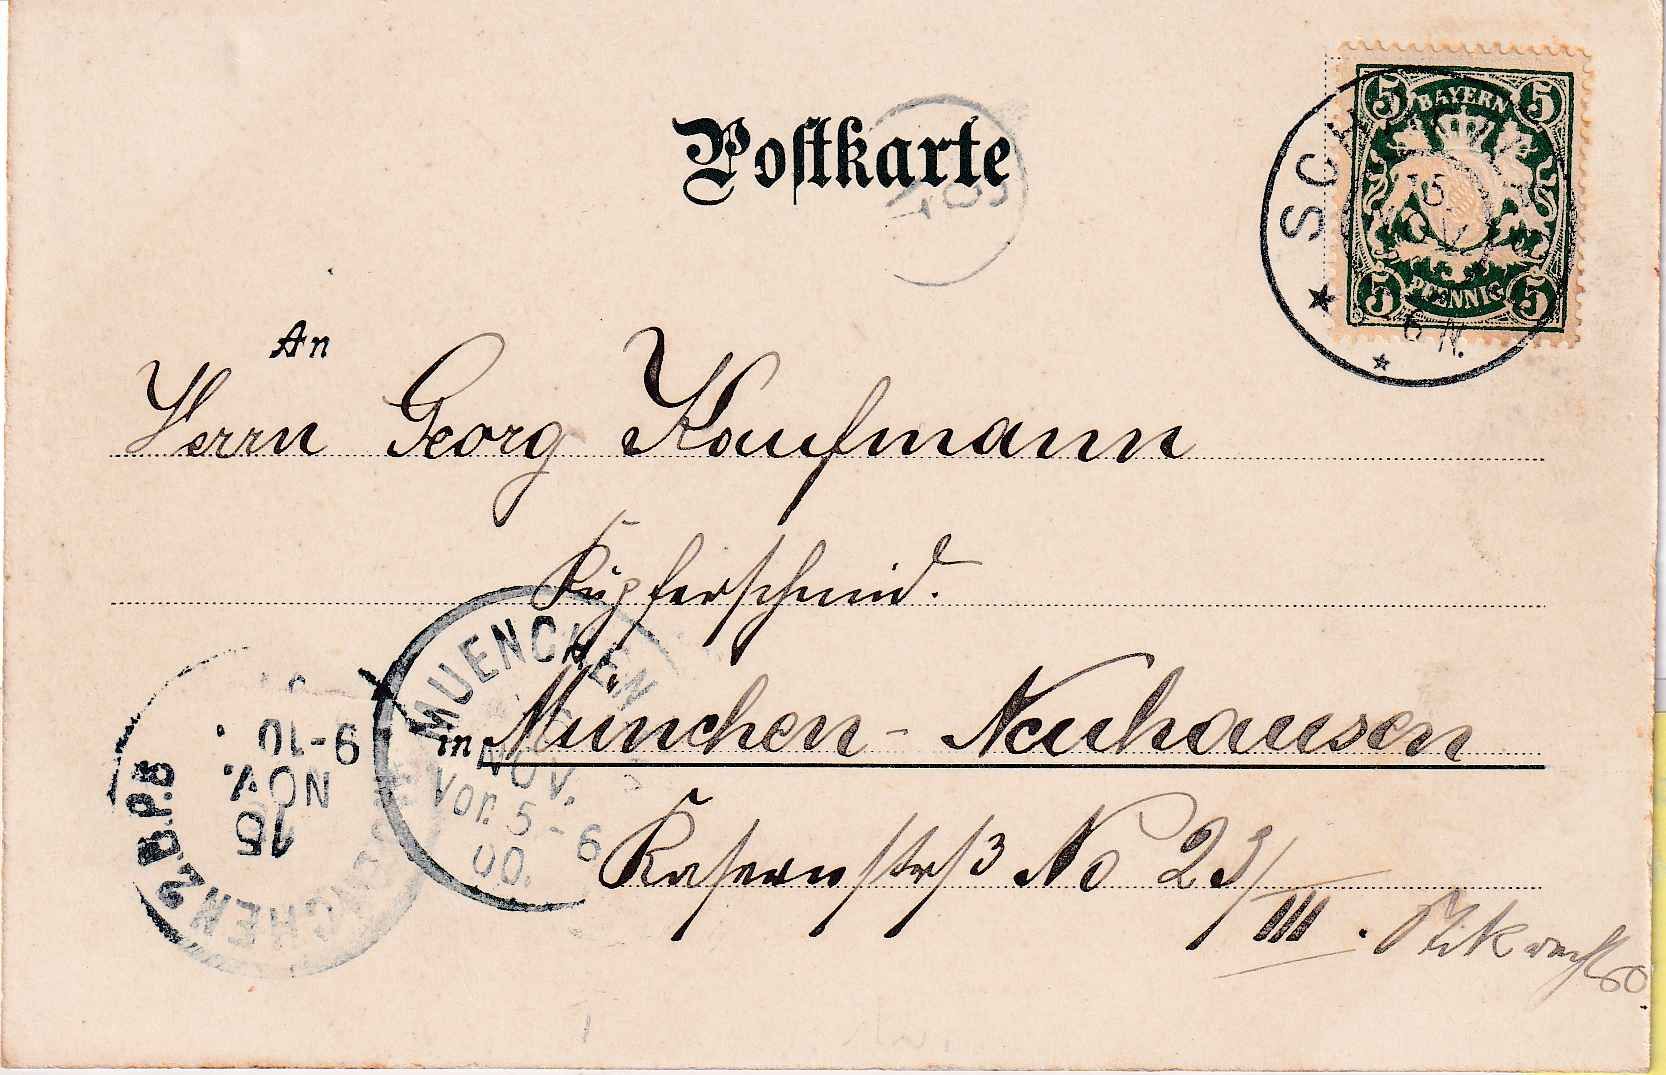 Postkarte
BAYERN
5 5
5 5
PFENNIG
6 N.
An
Herrn Georg Kaufmann
Kupferschmid.
in München-Neuhausen
Kasernstrß No 23/III. Stck rechts
MUENCHEN
NOV.
Vor. 5-6
00.
15
NOV.
9-10
2.B.P.5